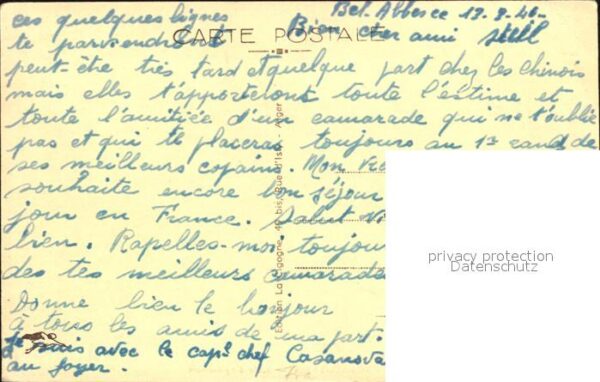 Bel-Abbesce 13-8-46-
Bien cher ami
CARTE POSTALE
ces quelques lignes
te parviendront
peut-être très tard et quelque part chez les chinois
mais elles t'apporteront toute l'éstime et
toute l'amitiée d'un camarade qui ne t'oublie
pas et qui te placera toujours au 1er rand de
ses meilleurs copains. Mon
souhaite encore bon séjour
jour en France. Salut
bien. Rapelles-moi toujou
des tes meilleurs camarade
Donne bien le bonjour
à tous les amis de ma part.
Je suis avec le cap. chef Casanova
au foyer.
Edition La Cigogne, 40 bis, Rue d'Isly - Alger
privacy protection
Datenschutz